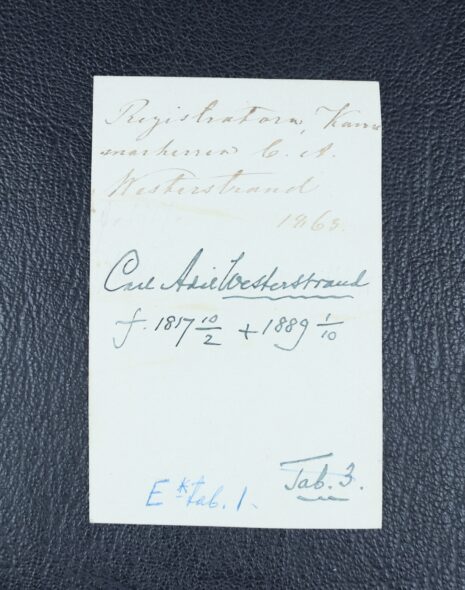 Registratorn, Kam
marherren C. A.
Westerstrand
1863.
Carl Axel Westerstrand
f. 1817 10/2 + 1889 1/10
Tab. 3.
E kt tab. 1.